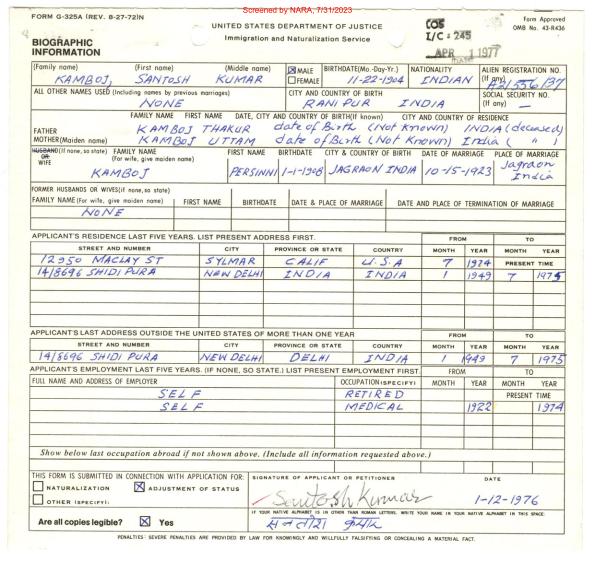 Screened by NARA, 7/31/2023
FORM G-325A (REV. 8-27-72)N
UNITED STATES DEPARTMENT OF JUSTICE
Immigration and Naturalization Service
COS
I/C: 245
APR 1 1977
Form Approved
OMB No. 43-R436
BIOGRAPHIC INFORMATION
(Family name) (First name) (Middle name) ☒ MALE ☐ FEMALE BIRTHDATE (Mo.-Day-Yr.) NATIONALITY ALIEN REGISTRATION NO. (If any)
KAMBOJ, SANTOSH KUMAR 11-22-1904 INDIAN A21556137
ALL OTHER NAMES USED (Including names by previous marriages) CITY AND COUNTRY OF BIRTH SOCIAL SECURITY NO. (If any)
NONE RANIPUR INDIA —
FAMILY NAME FIRST NAME DATE, CITY AND COUNTRY OF BIRTH (If known) CITY AND COUNTRY OF RESIDENCE
FATHER KAMBOJ THAKUR date of Birth (Not Known) INDIA (deceased)
MOTHER (Maiden name) KAMBOJ UTTAM date of Birth (Not Known) India ( " )
HUSBAND (If none, so state) OR WIFE FAMILY NAME (For wife, give maiden name) FIRST NAME BIRTHDATE CITY & COUNTRY OF BIRTH DATE OF MARRIAGE PLACE OF MARRIAGE
KAMBOJ PERSINNI 1-1-1908 JAGRAON INDIA 10-15-1923 Jagraon India
FORMER HUSBANDS OR WIVES (if none, so state)
FAMILY NAME (For wife, give maiden name) FIRST NAME BIRTHDATE DATE & PLACE OF MARRIAGE DATE AND PLACE OF TERMINATION OF MARRIAGE
NONE
APPLICANT'S RESIDENCE LAST FIVE YEARS. LIST PRESENT ADDRESS FIRST. FROM TO
STREET AND NUMBER CITY PROVINCE OR STATE COUNTRY MONTH YEAR MONTH YEAR
12950 MACLAY ST SYLMAR CALIF U.S.A 7 1974 PRESENT TIME
14/8696 SHIDI PURA NEW DELHI INDIA INDIA 1 1949 7 1975
APPLICANT'S LAST ADDRESS OUTSIDE THE UNITED STATES OF MORE THAN ONE YEAR FROM TO
STREET AND NUMBER CITY PROVINCE OR STATE COUNTRY MONTH YEAR MONTH YEAR
14/8696 SHIDI PURA NEW DELHI DELHI INDIA 1 1949 7 1975
APPLICANT'S EMPLOYMENT LAST FIVE YEARS. (IF NONE, SO STATE.) LIST PRESENT EMPLOYMENT FIRST. FROM TO
FULL NAME AND ADDRESS OF EMPLOYER OCCUPATION (SPECIFY) MONTH YEAR MONTH YEAR
SELF RETIRED PRESENT TIME
SELF MEDICAL 1922 1974
Show below last occupation abroad if not shown above. (Include all information requested above.)
THIS FORM IS SUBMITTED IN CONNECTION WITH APPLICATION FOR: SIGNATURE OF APPLICANT OR PETITIONER DATE
☐ NATURALIZATION ☒ ADJUSTMENT OF STATUS
☐ OTHER (SPECIFY):
Santosh Kumar 1-12-1976
IF YOUR NATIVE ALPHABET IS IN OTHER THAN ROMAN LETTERS, WRITE YOUR NAME IN YOUR NATIVE ALPHABET IN THIS SPACE:
Are all copies legible? ☒ Yes
PENALTIES: SEVERE PENALTIES ARE PROVIDED BY LAW FOR KNOWINGLY AND WILLFULLY FALSIFYING OR CONCEALING A MATERIAL FACT.